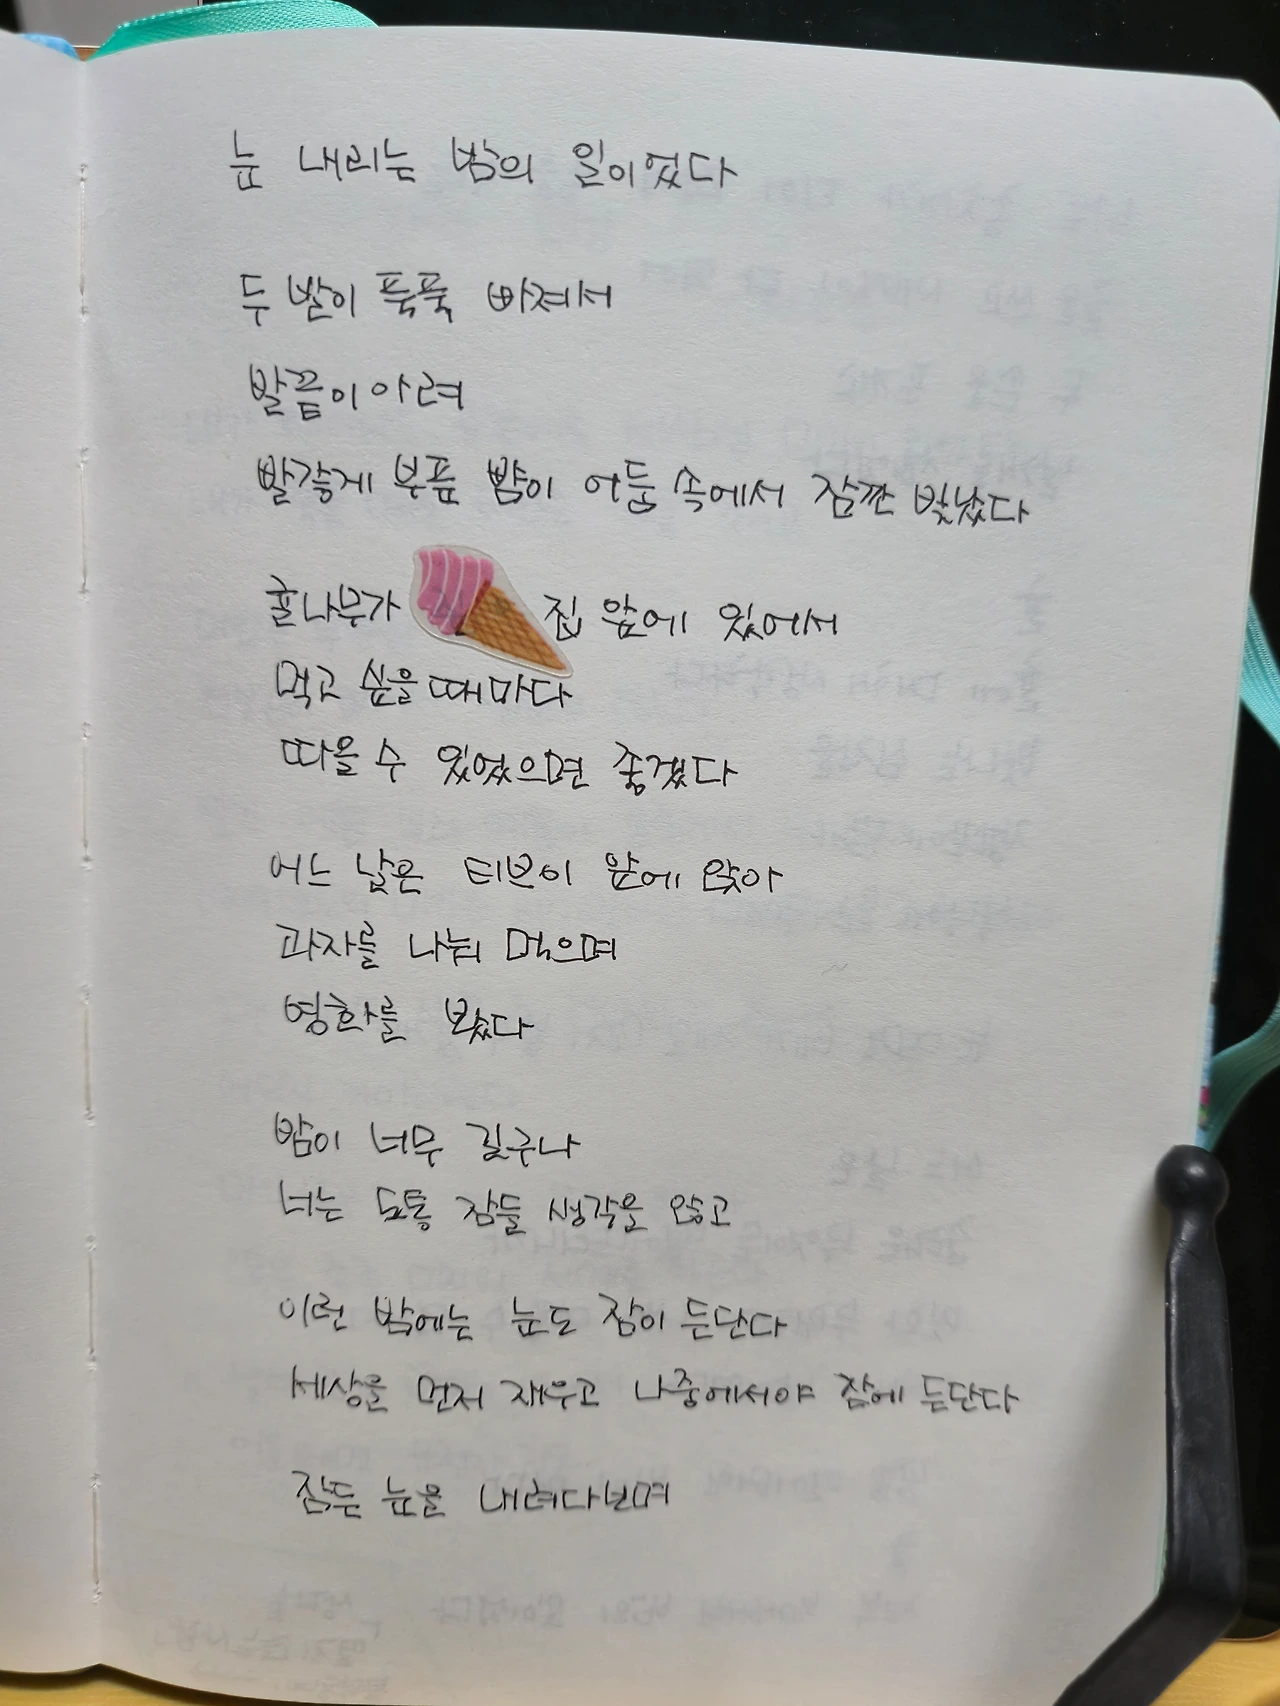 눈 내리는 밤의 일이었다
두 발이 푹푹 빠져서
발끝이 아려
빨갛게 부푼 뺨이 어둠 속에서 잠깐 빛났다
귤나무가 집 앞에 있어서
먹고 싶을 때마다
따올 수 있었으면 좋겠다
어느 날은 티브이 앞에 앉아
과자를 나눠 먹으며
영화를 봤다
밤이 너무 길구나
너는 도통 잠들 생각을 않고
이런 밤에는 눈도 잠이 든단다
세상을 먼저 재우고 나중에서야 잠에 든단다
잠든 눈을 내려다보며